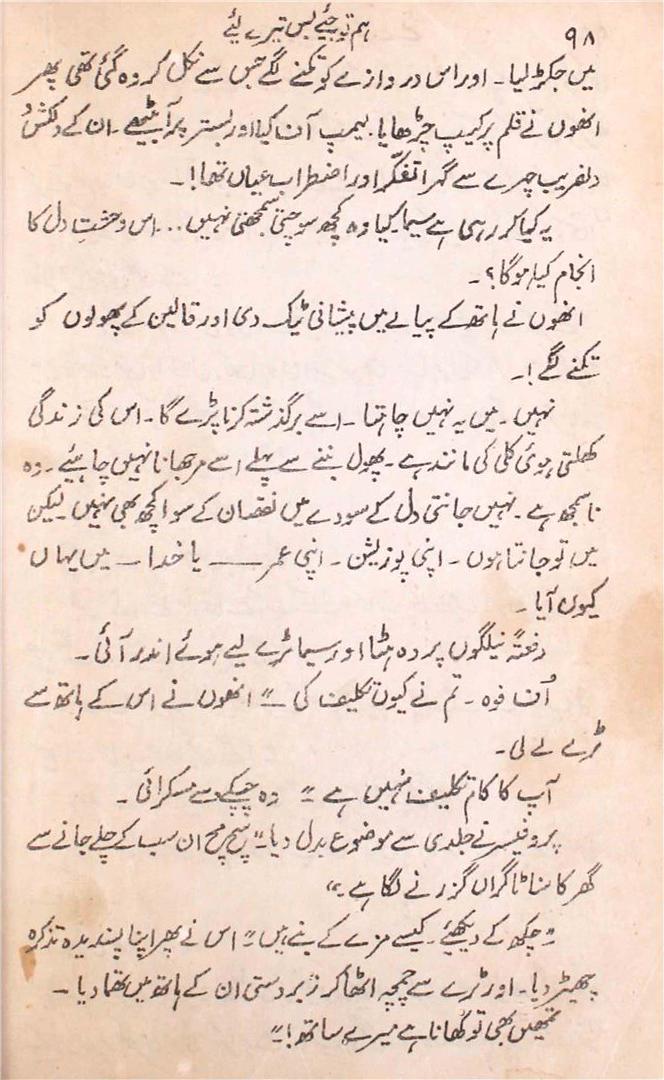 ۹۸
ہم تو جیئے بس تیرے لئے
میں جکڑ لیا ۔ اور اس دروازے کو تکنے لگے جس سے نکل کر وہ گئی تھی پھر
انھوں نے قلم پر کیپ چڑھایا ۔ لیمپ آن کیا اور بستر پر آ بیٹھے ۔ ان کے دلکش و
دلفریب چہرے سے گہرا تفکّر اور اضطراب عیاں تھا ! ۔
یہ کیا کر رہی ہے سیما کیا وہ کچھ سوچتی سمجھتی نہیں ... اس وحشتِ دل کا
انجام کیا ہوگا ؟ ۔
انھوں نے ہاتھ کے پیالے میں پیشانی ٹیک دی اور قالین کے پھولوں کو
تکنے لگے ! ۔
نہیں ۔ میں یہ نہیں چاہتا ۔ اسے برگذشتہ کرنا پڑے گا ۔ اس کی زندگی
کھلتی ہوئی کلی کی مانند ہے ۔ پھول بننے سے پہلے اسے مرجھانا نہیں چاہیئے ۔ وہ
نا سمجھ ہے ۔ نہیں جانتی دل کے سودے میں نقصان کے سوا کچھ بھی نہیں ۔ لیکن
میں تو جانتا ہوں ۔ اپنی پوزیشن ۔ اپنی عمر ــــ یا خدا ــ میں یہاں
کیوں آیا ۔
دفعتہً نیلگوں پردہ ہٹا اور سیما ٹرے لیے ہوئے اندر آئی ۔
اُف فوہ ۔ تم نے کیوں تکلیف کی ــ" انھوں نے اس کے ہاتھ سے
ٹرے لے لی ۔
آپ کا کام تکلیف نہیں ہے ــ" وہ چپکے سے مسکرائی ۔
پروفیسر نے جلدی سے موضوع بدل دیا ــ" سچ مچ ان سب کے چلے جانے سے
گھر کا سناٹا گراں گزرنے لگا ہے ۔"
"چکھ کے دیکھیئے ۔ کیسے مزے کے بنے ہیں ــ" اس نے پھر اپنا پسندیدہ تذکرہ
چھیڑ دیا ۔ اور ٹرے سے چمچہ اٹھا کر زبردستی ان کے ہاتھ میں تھما دیا ۔
تمھیں بھی تو کھانا ہے میرے ساتھ ! ــ"